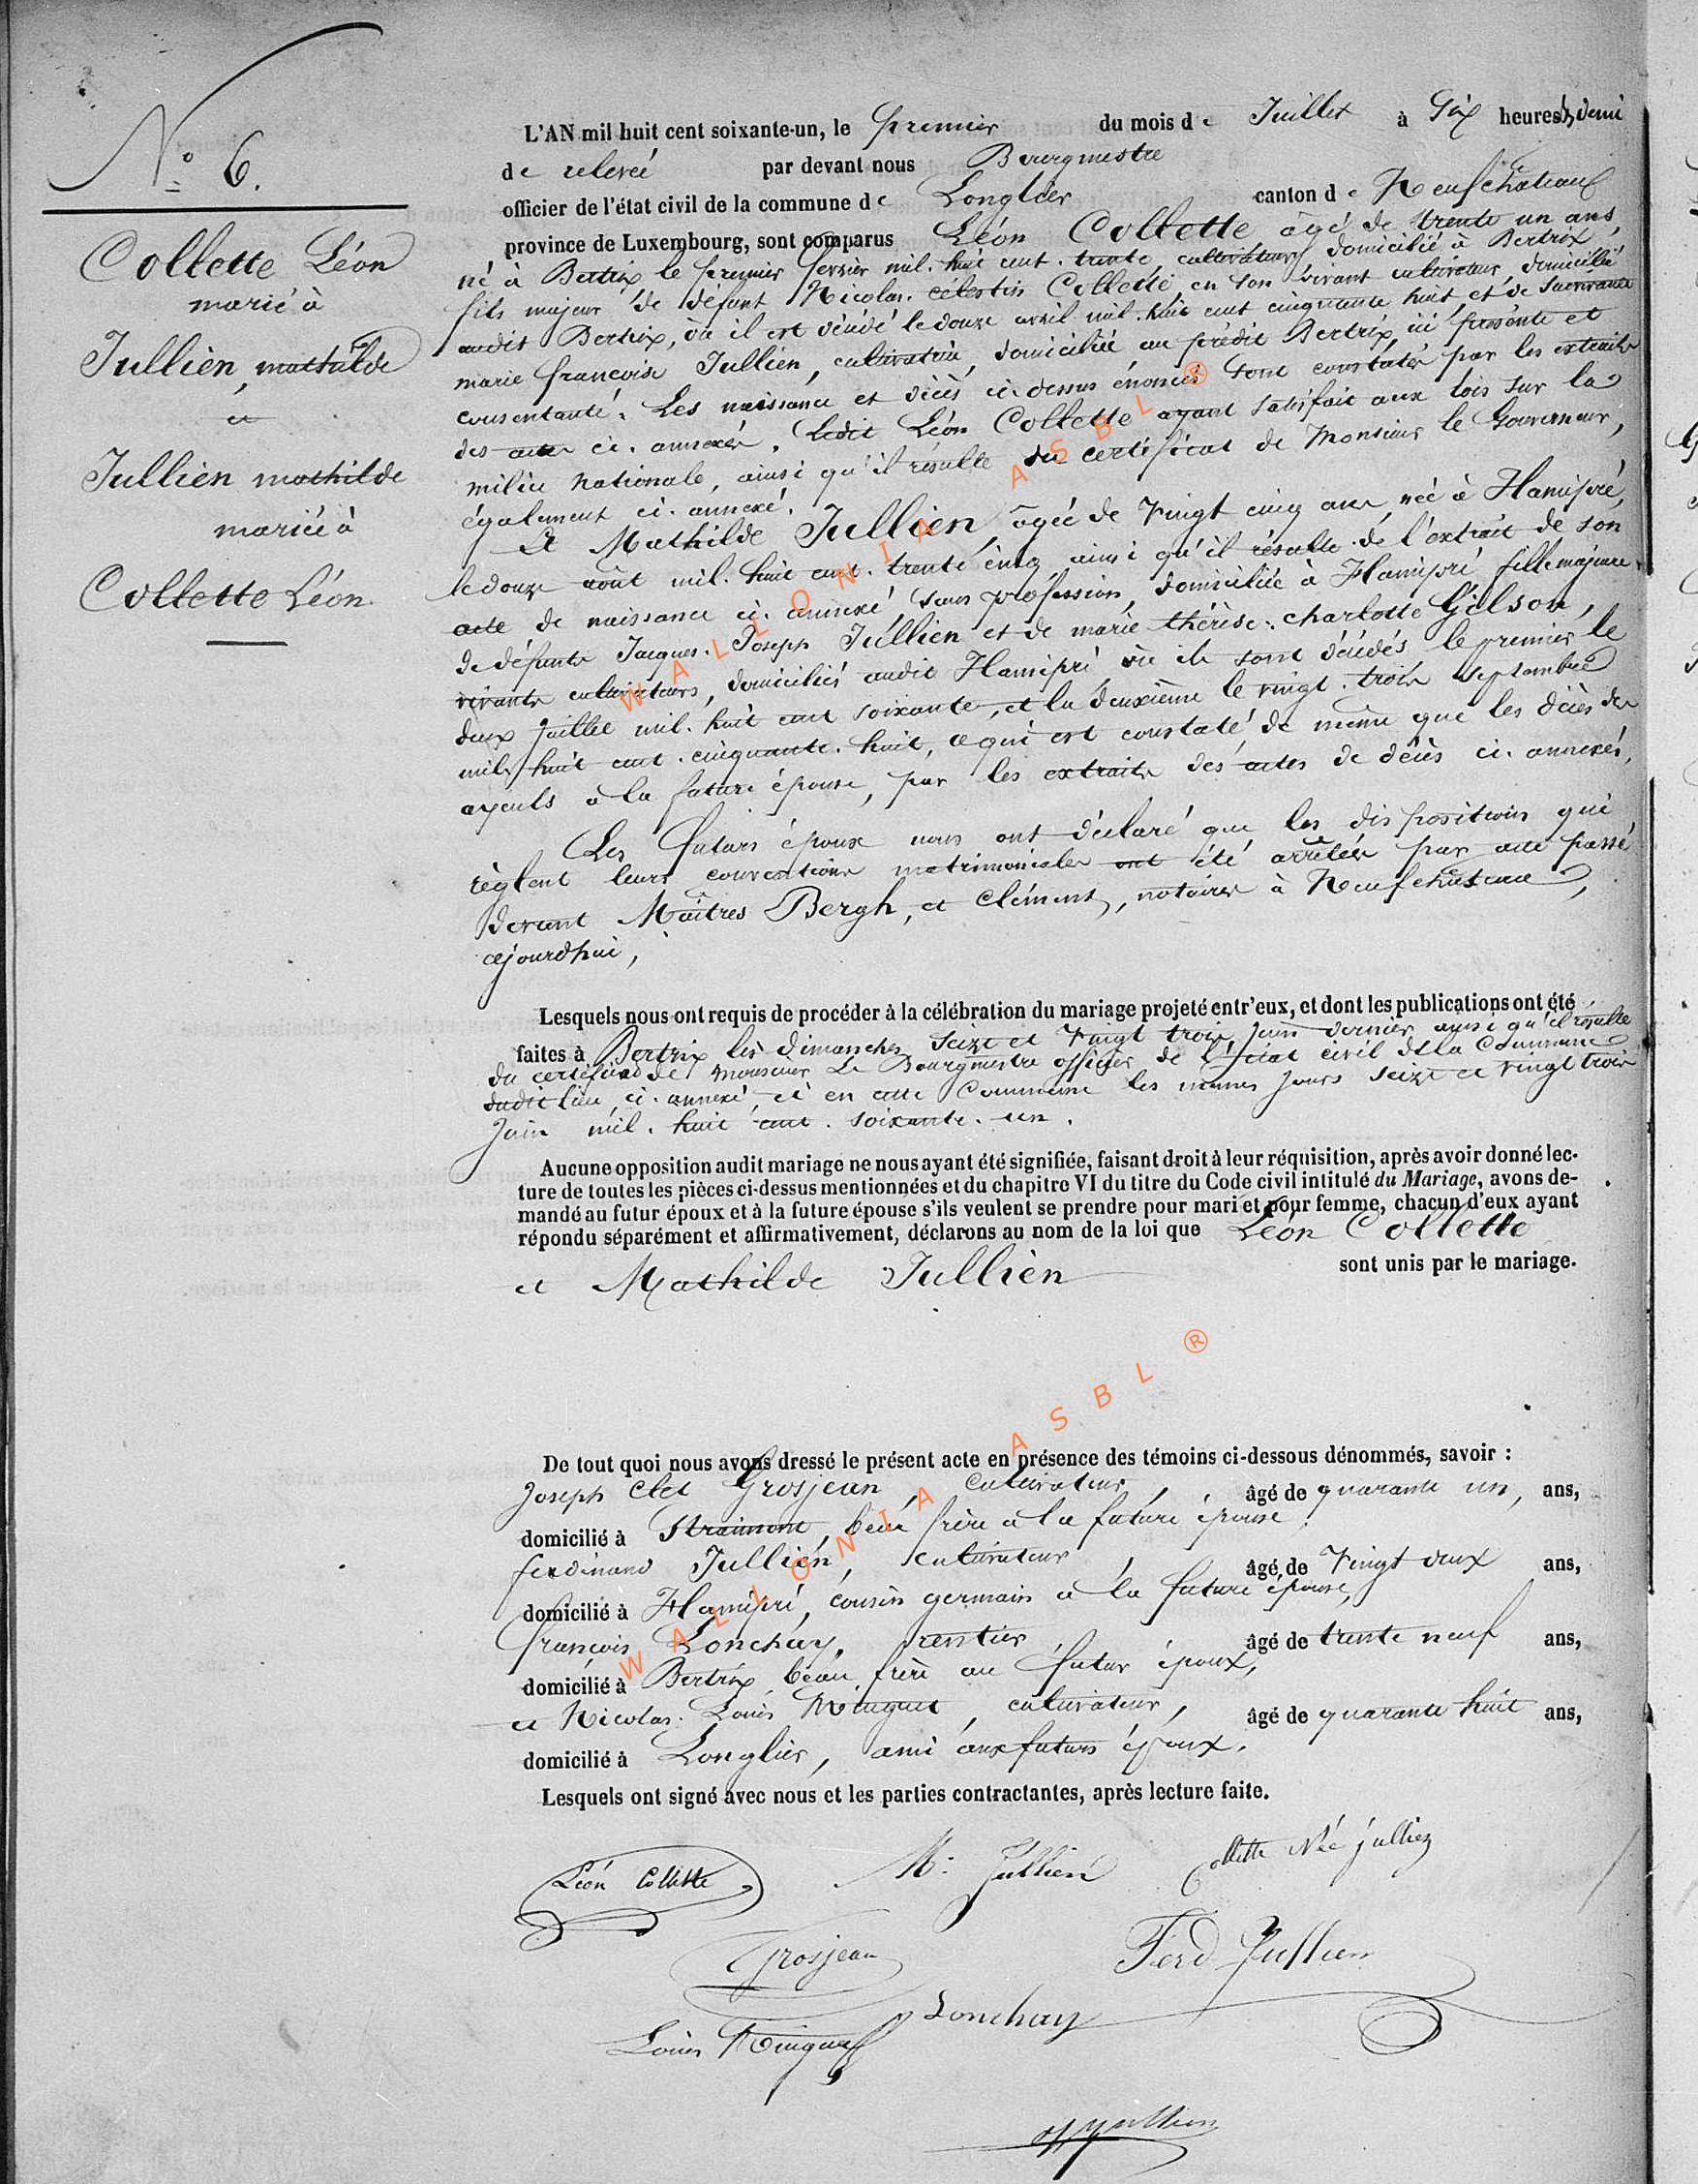 N° 6.
Collette Léon
marié à
Jullien, mathilde
et
Jullien mathilde
mariée à
Collette Léon.
L'AN mil huit cent soixante-un, le premier du mois de Juillet à Six heures & demi
de relevée par devant nous Bourgmestre
officier de l'état civil de la commune de Longlier canton de Neufchateau
province de Luxembourg, sont comparus Léon Collette âgé de trente un ans,
né à Bertrix le premier fevrier mil. huit cent. trente, cultivateur, domicilié à Bertrix,
fils majeur de défunt Nicolas. célestin Collette, en son vivant cultivateur, domicilié
audit Bertrix, où il est décédé le douze avril mil. huit cent cinquante huit et de survivante
marie françoise Jullien, cultivatrice, domiciliée au prédit Bertrix, ici présente et
consentante. Les naissance et décès ci. dessus énoncés sont constatés par les extraits
des actes ci. annexés. Ledit Léon Collette ayant satisfait aux lois sur la
milice nationale, ainsi qu'il résulte du certificat de Monsieur le Gouverneur,
également ci. annexé.
Et Mathilde Jullien, âgée de vingt cinq ans, née à Hamipré,
le douze août mil. huit cent. trente cinq, ainsi qu'il résulte de l'extrait de son
acte de naissance ci. annexé, sans profession, domiciliée à Hamipré, fille majeure
de défunts Jacques. Joseph Jullien et de marie thérèse. charlotte Gilson,
vivants cultivateurs, domiciliés audit Hamipré, où ils sont décédés le premier le
deux Juillet mil. huit cent soixante, et la deuxième le vingt. trois septembre
mil. huit cent. cinquante. huit, ce qui est constaté de même que les décès des
ayeuls à la future épouse, par les extraits des actes de décès ci. annexés.
Les futurs époux nous ont déclaré que les dispositions qui
règlent leurs conventions matrimoniales ont été arrêtées par acte passé
devant Maîtres Bergh, et Clément, notaires à Neufchateau,
cejourdhui,
Lesquels nous ont requis de procéder à la célébration du mariage projeté entr'eux, et dont les publications ont été
faites à Bertrix les dimanches seize et vingt trois Juin dernier ainsi qu'il résulte
du certificat de monsieur Le Bourgmestre officier de l'Etat civil de la Commune
dudit lieu, ci. annexé et en cette Commune les mêmes Jours seize et vingt trois
Juin mil. huit cent. soixante. un.
Aucune opposition audit mariage ne nous ayant été signifiée, faisant droit à leur réquisition, après avoir donné lec-
ture de toutes les pièces ci-dessus mentionnées et du chapitre VI du titre du Code civil intitulé du Mariage, avons de-
mandé au futur époux et à la future épouse s'ils veulent se prendre pour mari et pour femme, chacun d'eux ayant
répondu séparément et affirmativement, déclarons au nom de la loi que Léon Collette
et Mathilde Jullien sont unis par le mariage.
De tout quoi nous avons dressé le présent acte en présence des témoins ci-dessous dénommés, savoir :
Joseph Clet Grosjean, cultivateur, âgé de quarante un, ans,
domicilié à Straimont, beau frère à la future épouse,
ferdinand Jullien, cultivateur, âgé de vingt deux ans,
domicilié à Hamipré, cousin germain à la future épouse,
françois Lonchay, rentier âgé de trente neuf ans,
domicilié à Bertrix, beau frère au futur époux,
et Nicolas. Louis Ninguet, cultivateur, âgé de quarante huit ans,
domicilié à Longlier, ami aux futurs époux.
Lesquels ont signé avec nous et les parties contractantes, après lecture faite.
Léon Collette M. Jullien Collette Née Jullien
Grosjean Ferd Jullien
Lonchay
Louis
WALLONIA ASBL ®
WALLONIA ASBL ®